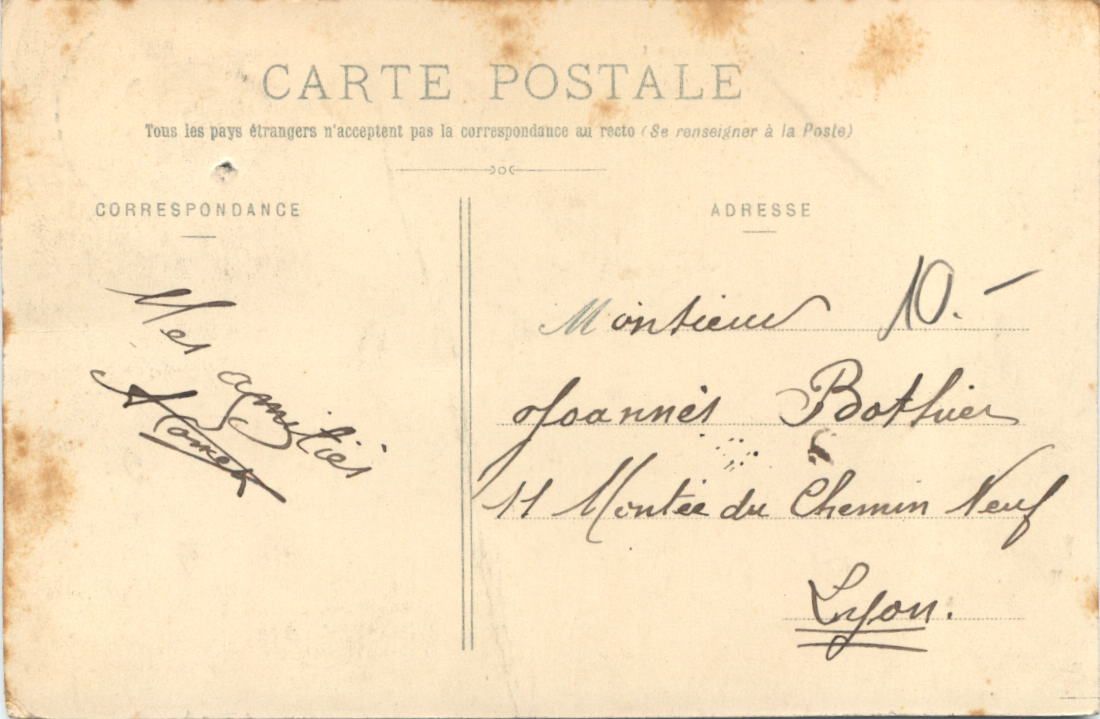 CARTE POSTALE
Tous les pays étrangers n'acceptent pas la correspondance au recto (Se renseigner à la Poste)
CORRESPONDANCE
Mes amitiés
ADRESSE
10.-
Monsieur
Joannès Bothier
11 Montée du Chemin Neuf
Lyon.